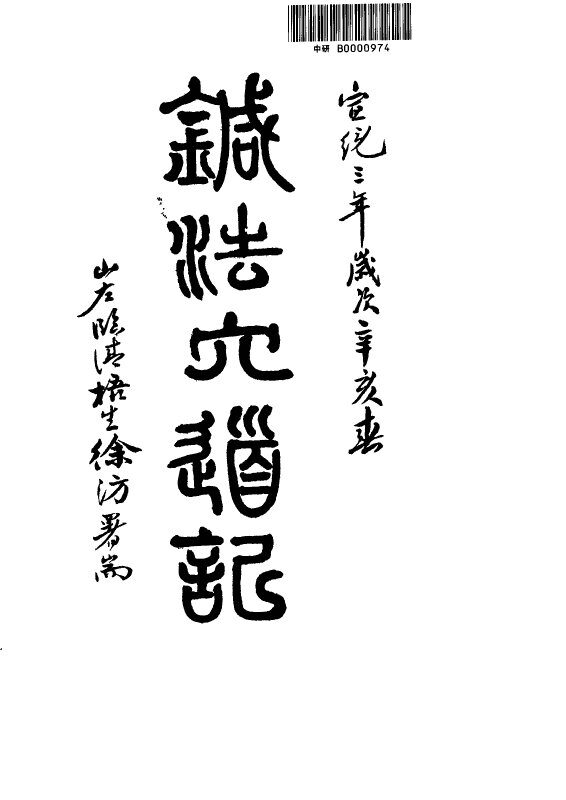 中研 B0000974
宣統三年歲次辛亥春
鍼法穴道記
山左臨清梧生徐坊署耑